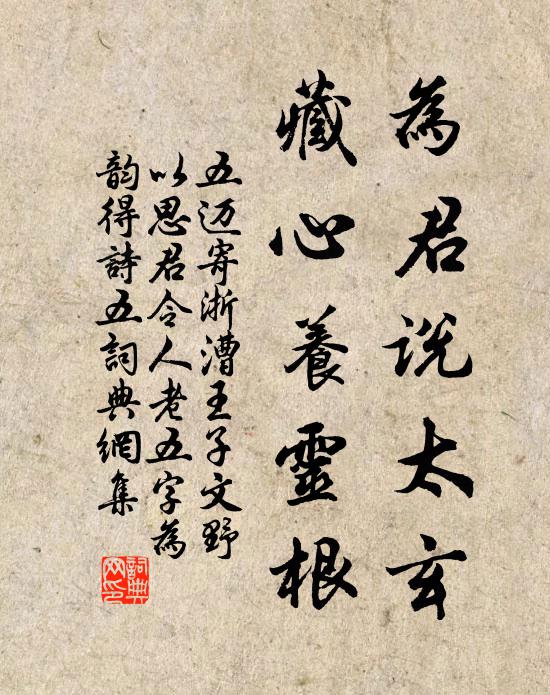 為君説太玄
藏心養靈根
五迈寄浙漕王子文野
以思君令人老五字為
韵得詩五詞典網集
詞典网印